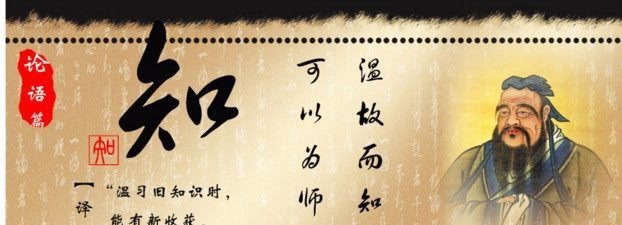 论语篇
知
知
温故而知
可以为师
【译
“温习旧知识时，
能有新收获